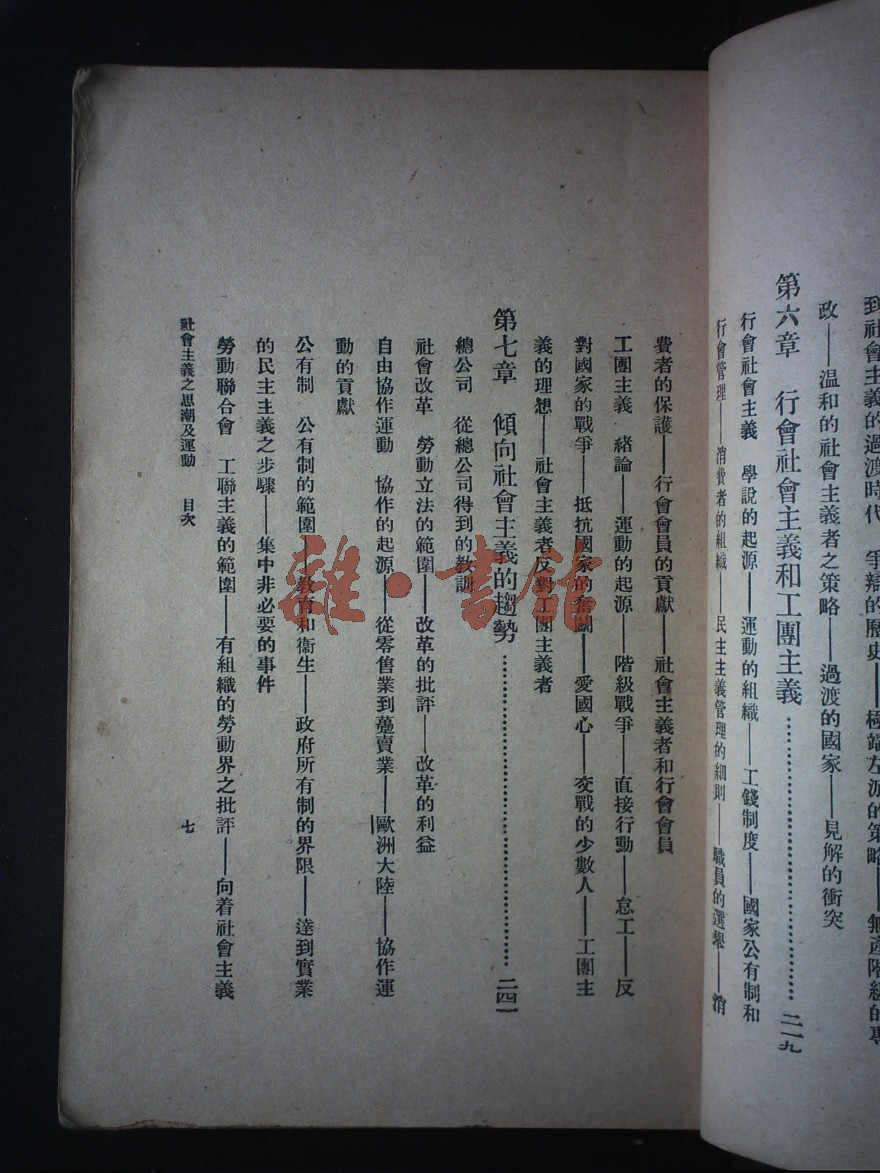 到社會主義的過渡時代 爭辯的歷史——極端左派的策略——無產階級的專
政——温和的社會主義者之策略——過渡的國家——見解的衝突
第六章 行會社會主義和工團主義…………………二一九
行會社會主義 學說的起源——運動的組織——工錢制度——國家公有制和
行會管理——消費者的組織——民主主義管理的細則——職員的選舉——消
費者的保護——行會會員的貢獻——社會主義者和行會會員
工團主義 緒論——運動的起源——階級戰爭——直接行動——怠工——反
對國家的戰爭——抵抗國家的奮鬭——愛國心——交戰的少數人——工團主
義的理想——社會主義者反對工團主義者
第七章 傾向社會主義的趨勢…………………二四一
總公司 從總公司得到的教訓
社會改革 勞動立法的範圍——改革的批評——改革的利益
自由協作運動 協作的起源——從零售業到躉賣業——歐洲大陸——協作運
動的貢獻
公有制 公有制的範圍——教育和衞生——政府所有制的界限——達到實業
的民主主義之步驟——集中非必要的事件
勞動聯合會 工聯主義的範圍——有組織的勞動界之批評——向着社會主義
社會主義之思潮及運動 目次 七
雜·書館